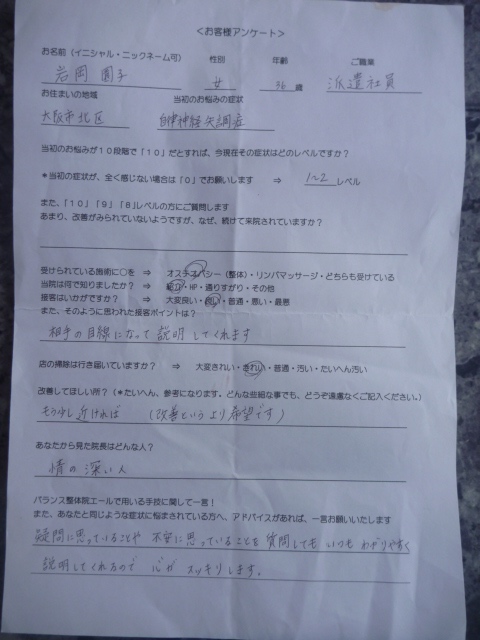 ＜お客様アンケート＞
お名前（イニシャル・ニックネーム可） 性別 年齢 ご職業
岩岡 園子 女 36 歳 派遣社員
お住まいの地域 当初のお悩みの症状
大阪市北区 自律神経失調症
当初のお悩みが１０段階で「１０」だとすれば、今現在その症状はどのレベルですか？
＊当初の症状が、全く感じない場合は「０」でお願いします ⇒ 1～2 レベル
また、「１０」「９」「８」レベルの方にご質問します
あまり、改善がみられていないようですが、なぜ、続けて来院されていますか？
受けられている施術に○を ⇒ オステオパシー（整体）・リンパマッサージ・どちらも受けている
当院は何で知りましたか？ ⇒ 紹介・HP・通りすがり・その他
接客はいかがですか？ ⇒ 大変良い・良い・普通・悪い・最悪
また、そのように思われた接客ポイントは？
相手の目線になって説明してくれます
店の掃除は行き届いていますか？ ⇒ 大変きれい・きれい・普通・汚い・たいへん汚い
改善してほしい所？（＊たいへん、参考になります。どんな些細な事でも、どうぞ遠慮なくご記入ください。）
もう少し近ければ （改善というより希望です）
あなたから見た院長はどんな人？
情の深い人
バランス整体院エールで用いる手技に関して一言！
また、あなたと同じような症状に悩まされている方へ、アドバイスがあれば、一言お願いいたします
疑問に思っていることや 不安に思っていることを質問しても いつも わかりやすく
説明してくれるので 心が スッキリします。